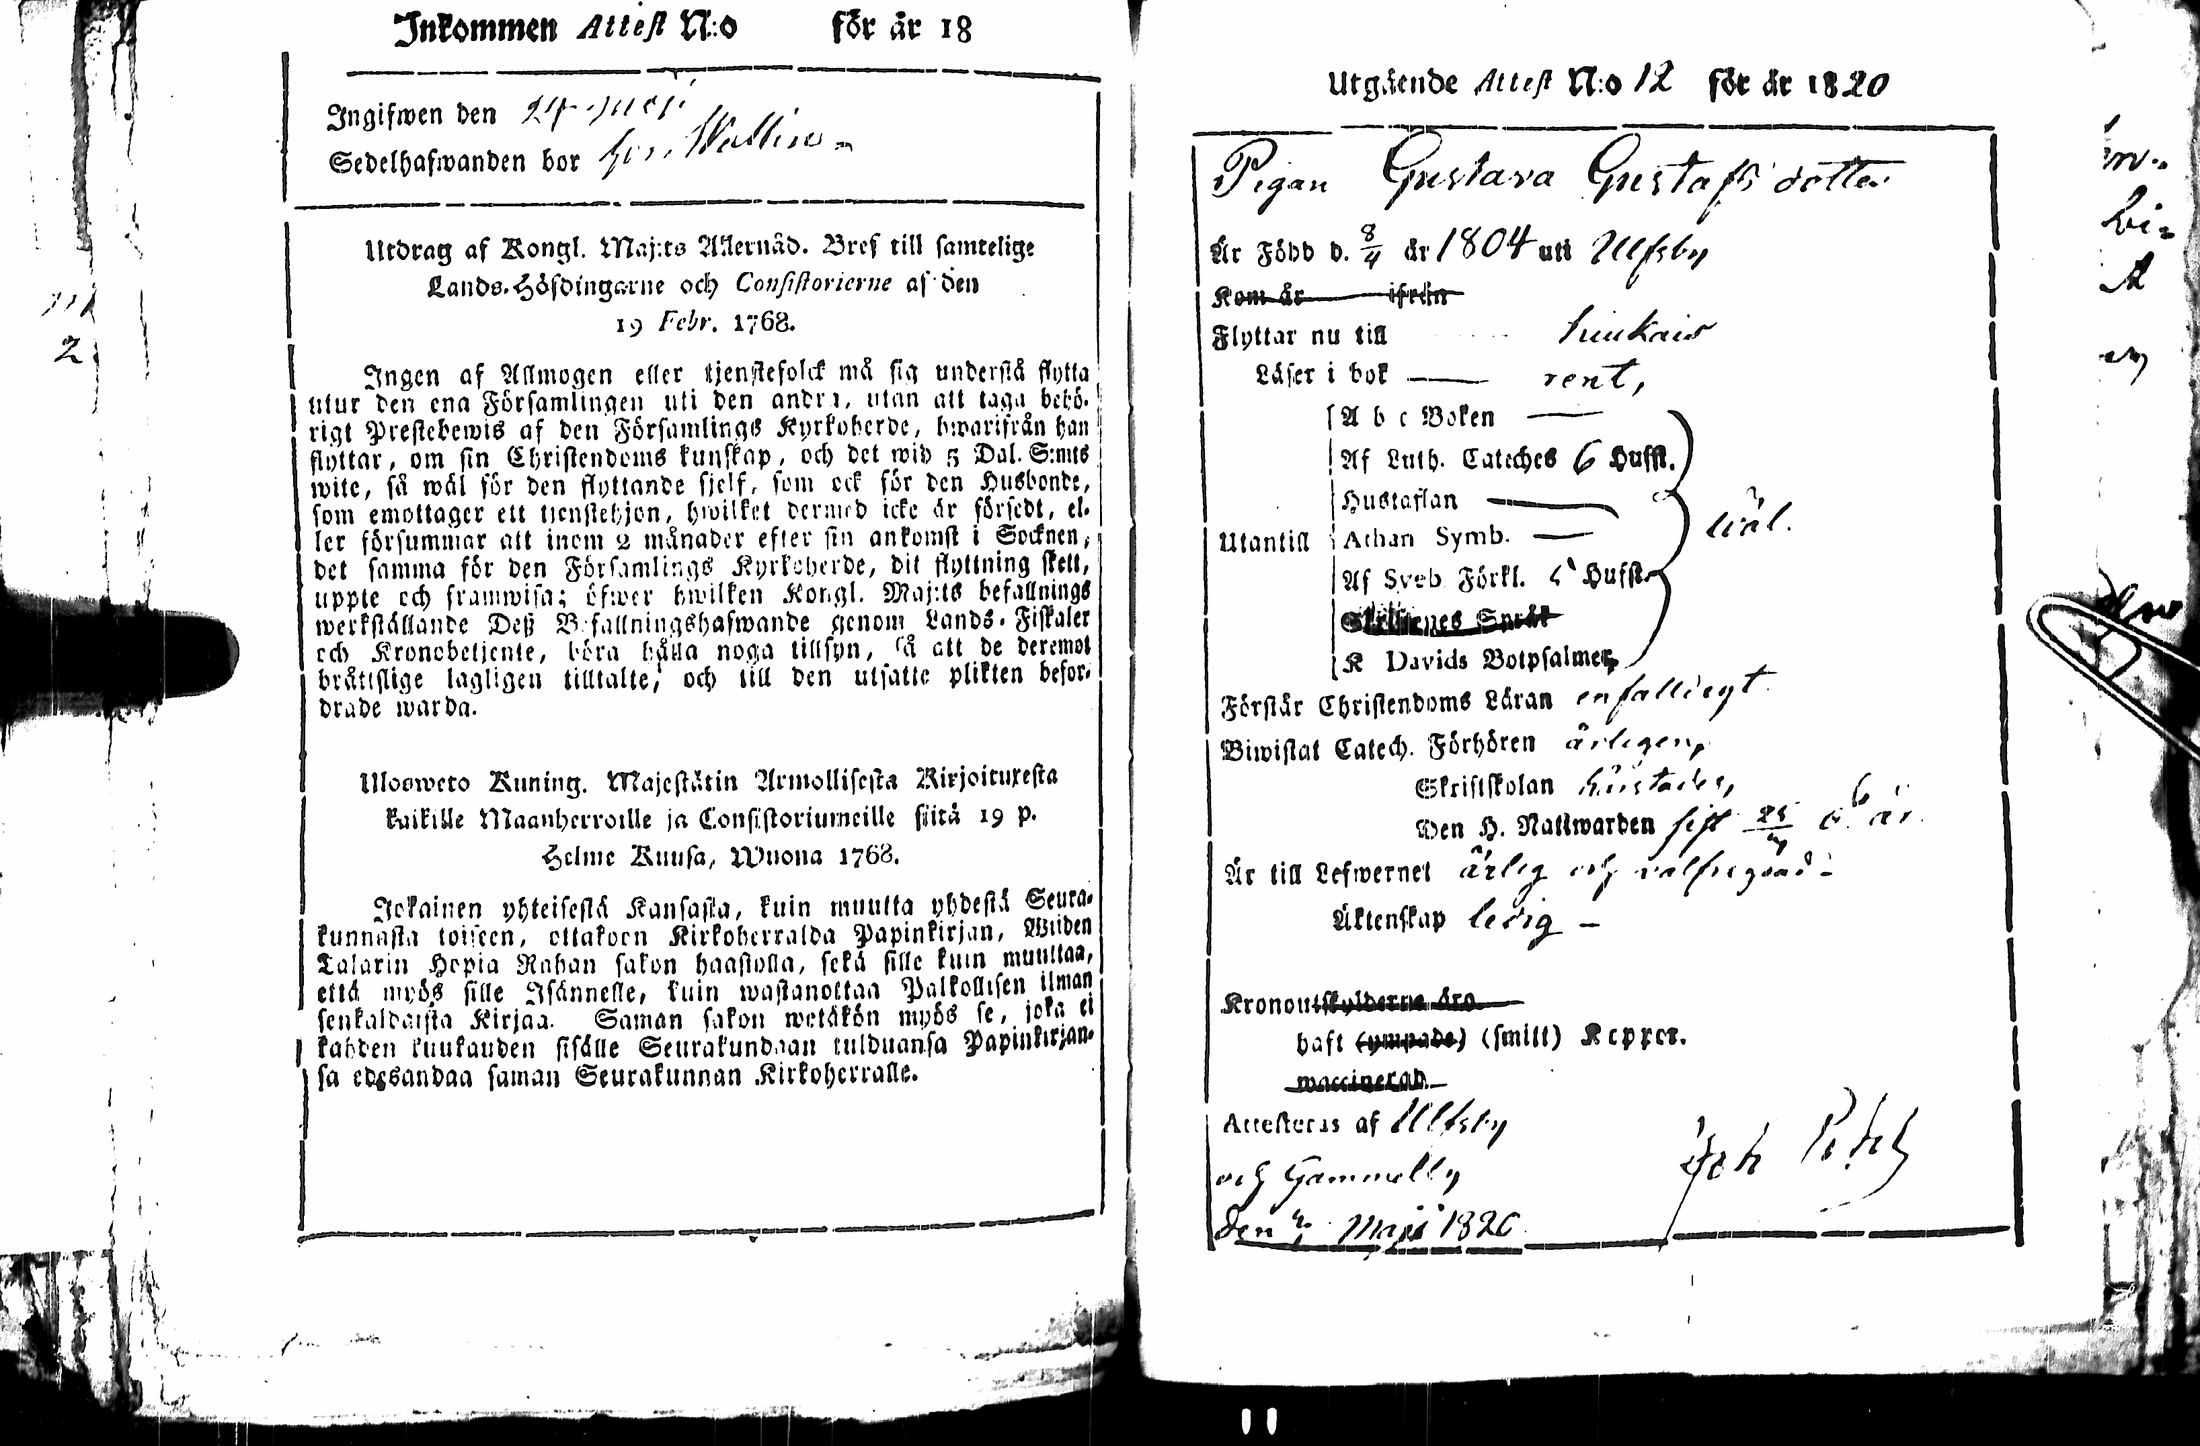 Inkommen Attest N:o för år 18
Ingifwen den 24
Sedelhafwanden bor hos Wallin
Utdrag af Kongl. Maj:ts Allernåd. Bref till samtelige
Lands-Höfdingarne och Consistorierne af den
19 Febr. 1768.
Ingen af Allmogen eller tjenstefolck må sig understå flytta
utur den ena Församlingen uti den andra, utan att taga behö-
rigt Prestebewis af den Församlings Kyrkoherde, hwarifrån han
flyttar, om sin Christendoms kunskap, och det wid 5 Dal. S:mts
wite, så wäl för den flyttande sjelf, som ock för den Husbonde,
som emottager ett tjenstehjon, hwilket dermed icke är försedt, el-
ler försummar att inom 2 månader efter sin ankomst i Socknen,
det samma för den Församlings Kyrkoherde, dit flyttning skett,
uppte och framwisa; öfwer hwilken Kongl. Maj:ts befallnings
werkställande Deß Befallningshafwande genom Lands-Fiskaler
och Kronobetjente, böra hålla noga tillsyn, så att de deremot
bråttslige lagligen tilltalte, och till den utsatte plikten befor-
drade warda.
Ulosweto Kuning. Majestätin Armollisesta Kirjoituxesta
kaikille Maanherroille ja Consistoriumeille siitä 19 p.
Helme Kuusa, Wuona 1768.
Jokainen yhteisestä Kansasta, kuin muutta yhdestä Seura-
kunnasta toiseen, ottakoon Kirkoherralda Papinkirjan, Wiiden
Talarin Hopia Rahan sakon haastolla, sekä sille kuin muuttaa,
että myös sille Isännelle, kuin wastanottaa Palkollisen ilman
senkaldaista Kirjaa. Saman sakon wetäkön myös se, joka ei
kahden kuukauden sisälle Seurakundaan tulduansa Papinkirjan-
sa edesandaa saman Seurakunnan Kirkoherralle.
Utgående Attest N:o 12 för år 1820
Pigan Gustava Gustafsdotter
Är Född d. 8/4 år 1804 uti Ulfsby
Kom år ifrån
Flyttar nu till
Läser i bok rent,
A b c Boken
Af Luth. Cateches 6 Hufst.
Hustaflan
Utantill Athan Symb. wäl.
Af Sveb. Förkl. Hufst.
Skriftenes Språk
K Davids Botpsalmer,
Förstår Christendoms Läran enfalldigt
Biwistat Catech. Förhören årligen,
Skriftskolan
Den H. Nattwarden sist 25 år
Är till Lefwernet ärlig och välfregdad
Äktenskap ledig
Kronoutskylderne äro
haft (ympade) (smitt) Koppor.
waccinerad
Attesteras af Ulfsby
och Gammelby
Den Maji 1820